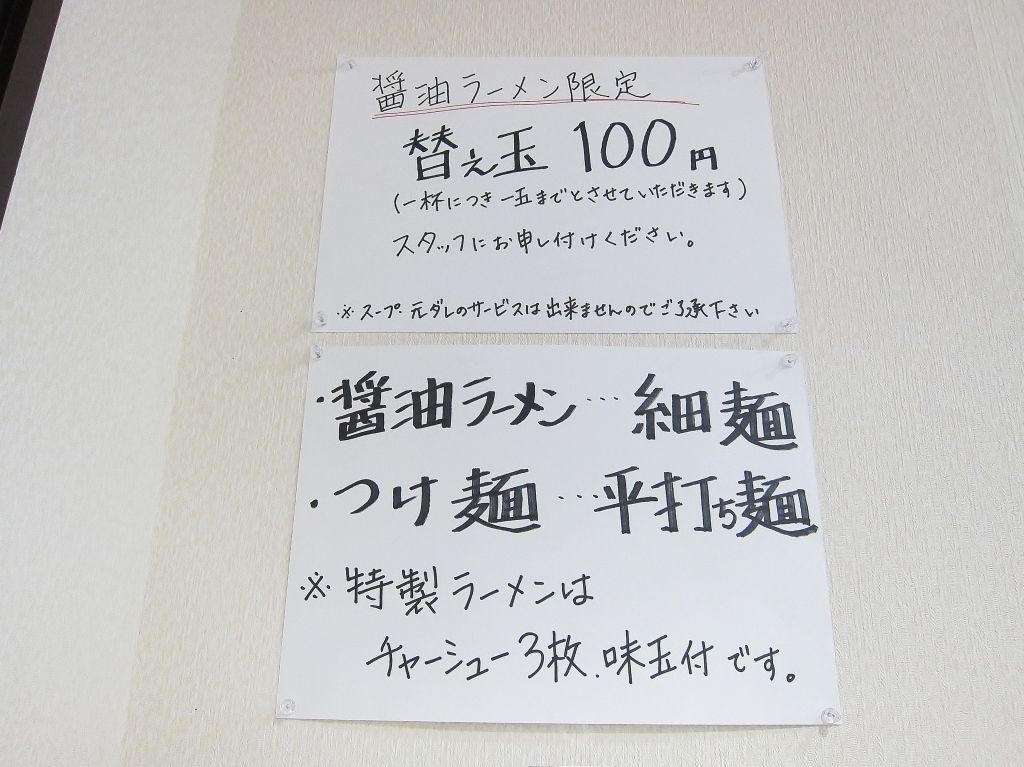 醤油ラーメン限定
替え玉 100円
(一杯につき一玉までとさせていただきます)
スタッフにお申し付けください。
※スープ.元ダレのサービスは出来ませんのでご了承下さい
・醤油ラーメン…細麺
・つけ麺…平打ち麺
※特製ラーメンは
チャーシュー3枚.味玉付です。